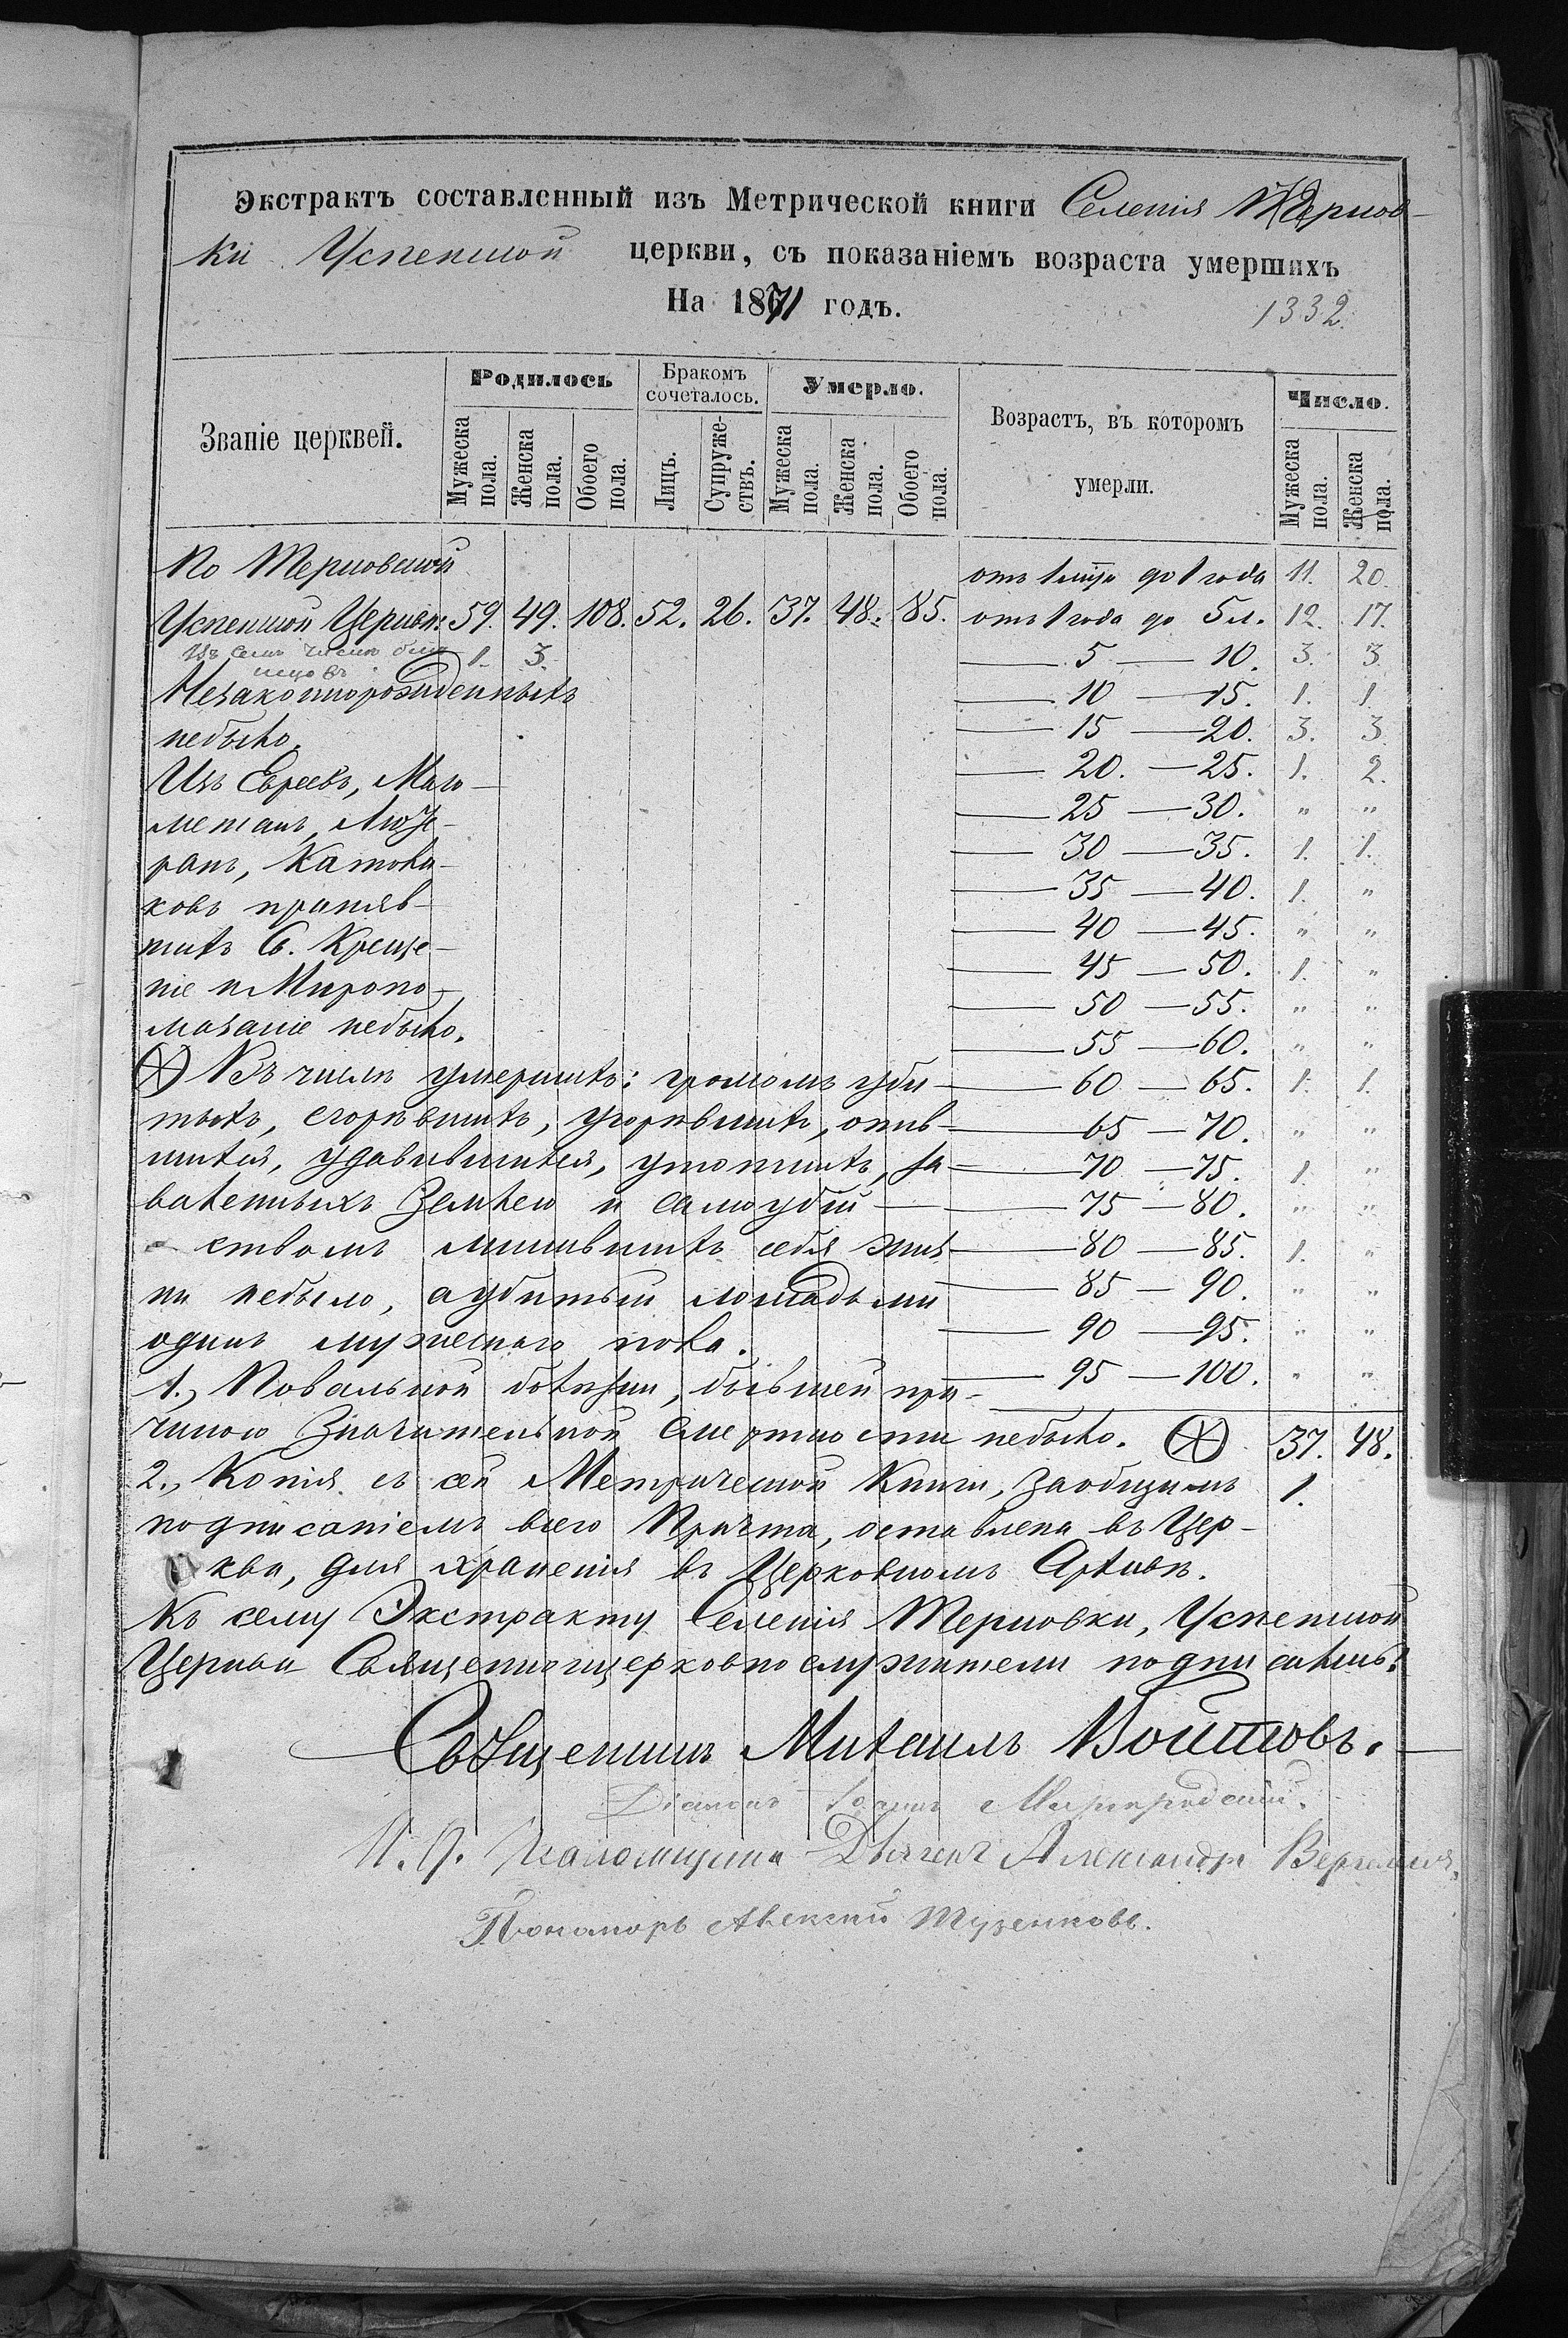 Экстрактъ составленный изъ Метрической книги Селенія Тернов-
ки Успенской церкви, съ показаніемъ возраста умершихъ
На 1871 годъ.
1332.
Званіе церквей.
Родилось
Бракомъ сочеталось.
Умерло.
Возрастъ, въ котором умерли.
Число.
Мужеска пола.
Женска пола.
Обоего пола.
Лицъ.
Супруже-ствъ.
Мужеска пола.
Женска пола.
Обоего пола.
Мужеска пола.
Женска пола.
По Терновской
Успенской Церкви: 59. 49. 108. 52. 26. 37. 48. 85.
Изъ сего числа близ
нецовъ 1. 3.
Незаконнорожденныхъ
небыло.
Изъ Евреевъ, Маго-
метанъ, Люте-
ранъ, Католи-
ковъ приняв-
шихъ Св. Креще-
ніе и Миропо-
мазаніе небыло.
отъ 1 мца до 1 года 11. 20.
отъ 1 года до 5 л. 12. 17.
— 5 — 10. 3. 3.
— 10 — 15. 1. 1.
— 15 — 20. 3. 3.
— 20. — 25. 1. 2.
— 25 — 30. " "
— 30 — 35. 1. 1.
— 35 — 40. 1. "
— 40 — 45. " "
— 45 — 50. 1. "
— 50 — 55. " "
— 55 — 60. " "
— 60 — 65. 1. 1.
— 65 — 70. " "
— 70 — 75. 1. "
— 75 — 80. " "
— 80 — 85. 1. "
— 85 — 90. " "
— 90 — 95. " "
— 95 — 100. " "
37. 48.
1.
Въ числѣ умершихъ: громомъ уби-
тыхъ, сгорѣвшихъ, угорѣвшихъ, опив-
шихся, удавившихся, утопшихъ, за-
валенныхъ Землею и самоубій-
ствомъ лишившихъ себя жиз-
ни небыло, а убитый лошадьми
одинъ мужескаго пола.
1., Повальной болѣзни, бывшей при-
чиною Значительной Смертности небыло.
2., Копія съ сей Метрической Книги, за общимъ
подписаніемъ всего Причта, оставлена въ Цер-
кви, для храненія въ Церковномъ Архивѣ.
Къ сему Экстракту Селенія Терновки, Успенской
Церкви Священноцерковнослужители подписались:
Священникъ Михаилъ Войтовъ.
Діаконъ Іоаннъ Миргородскій.
И. д. Псаломщика Дьячекъ Александръ
Пономарь Алексий Тузенковъ.